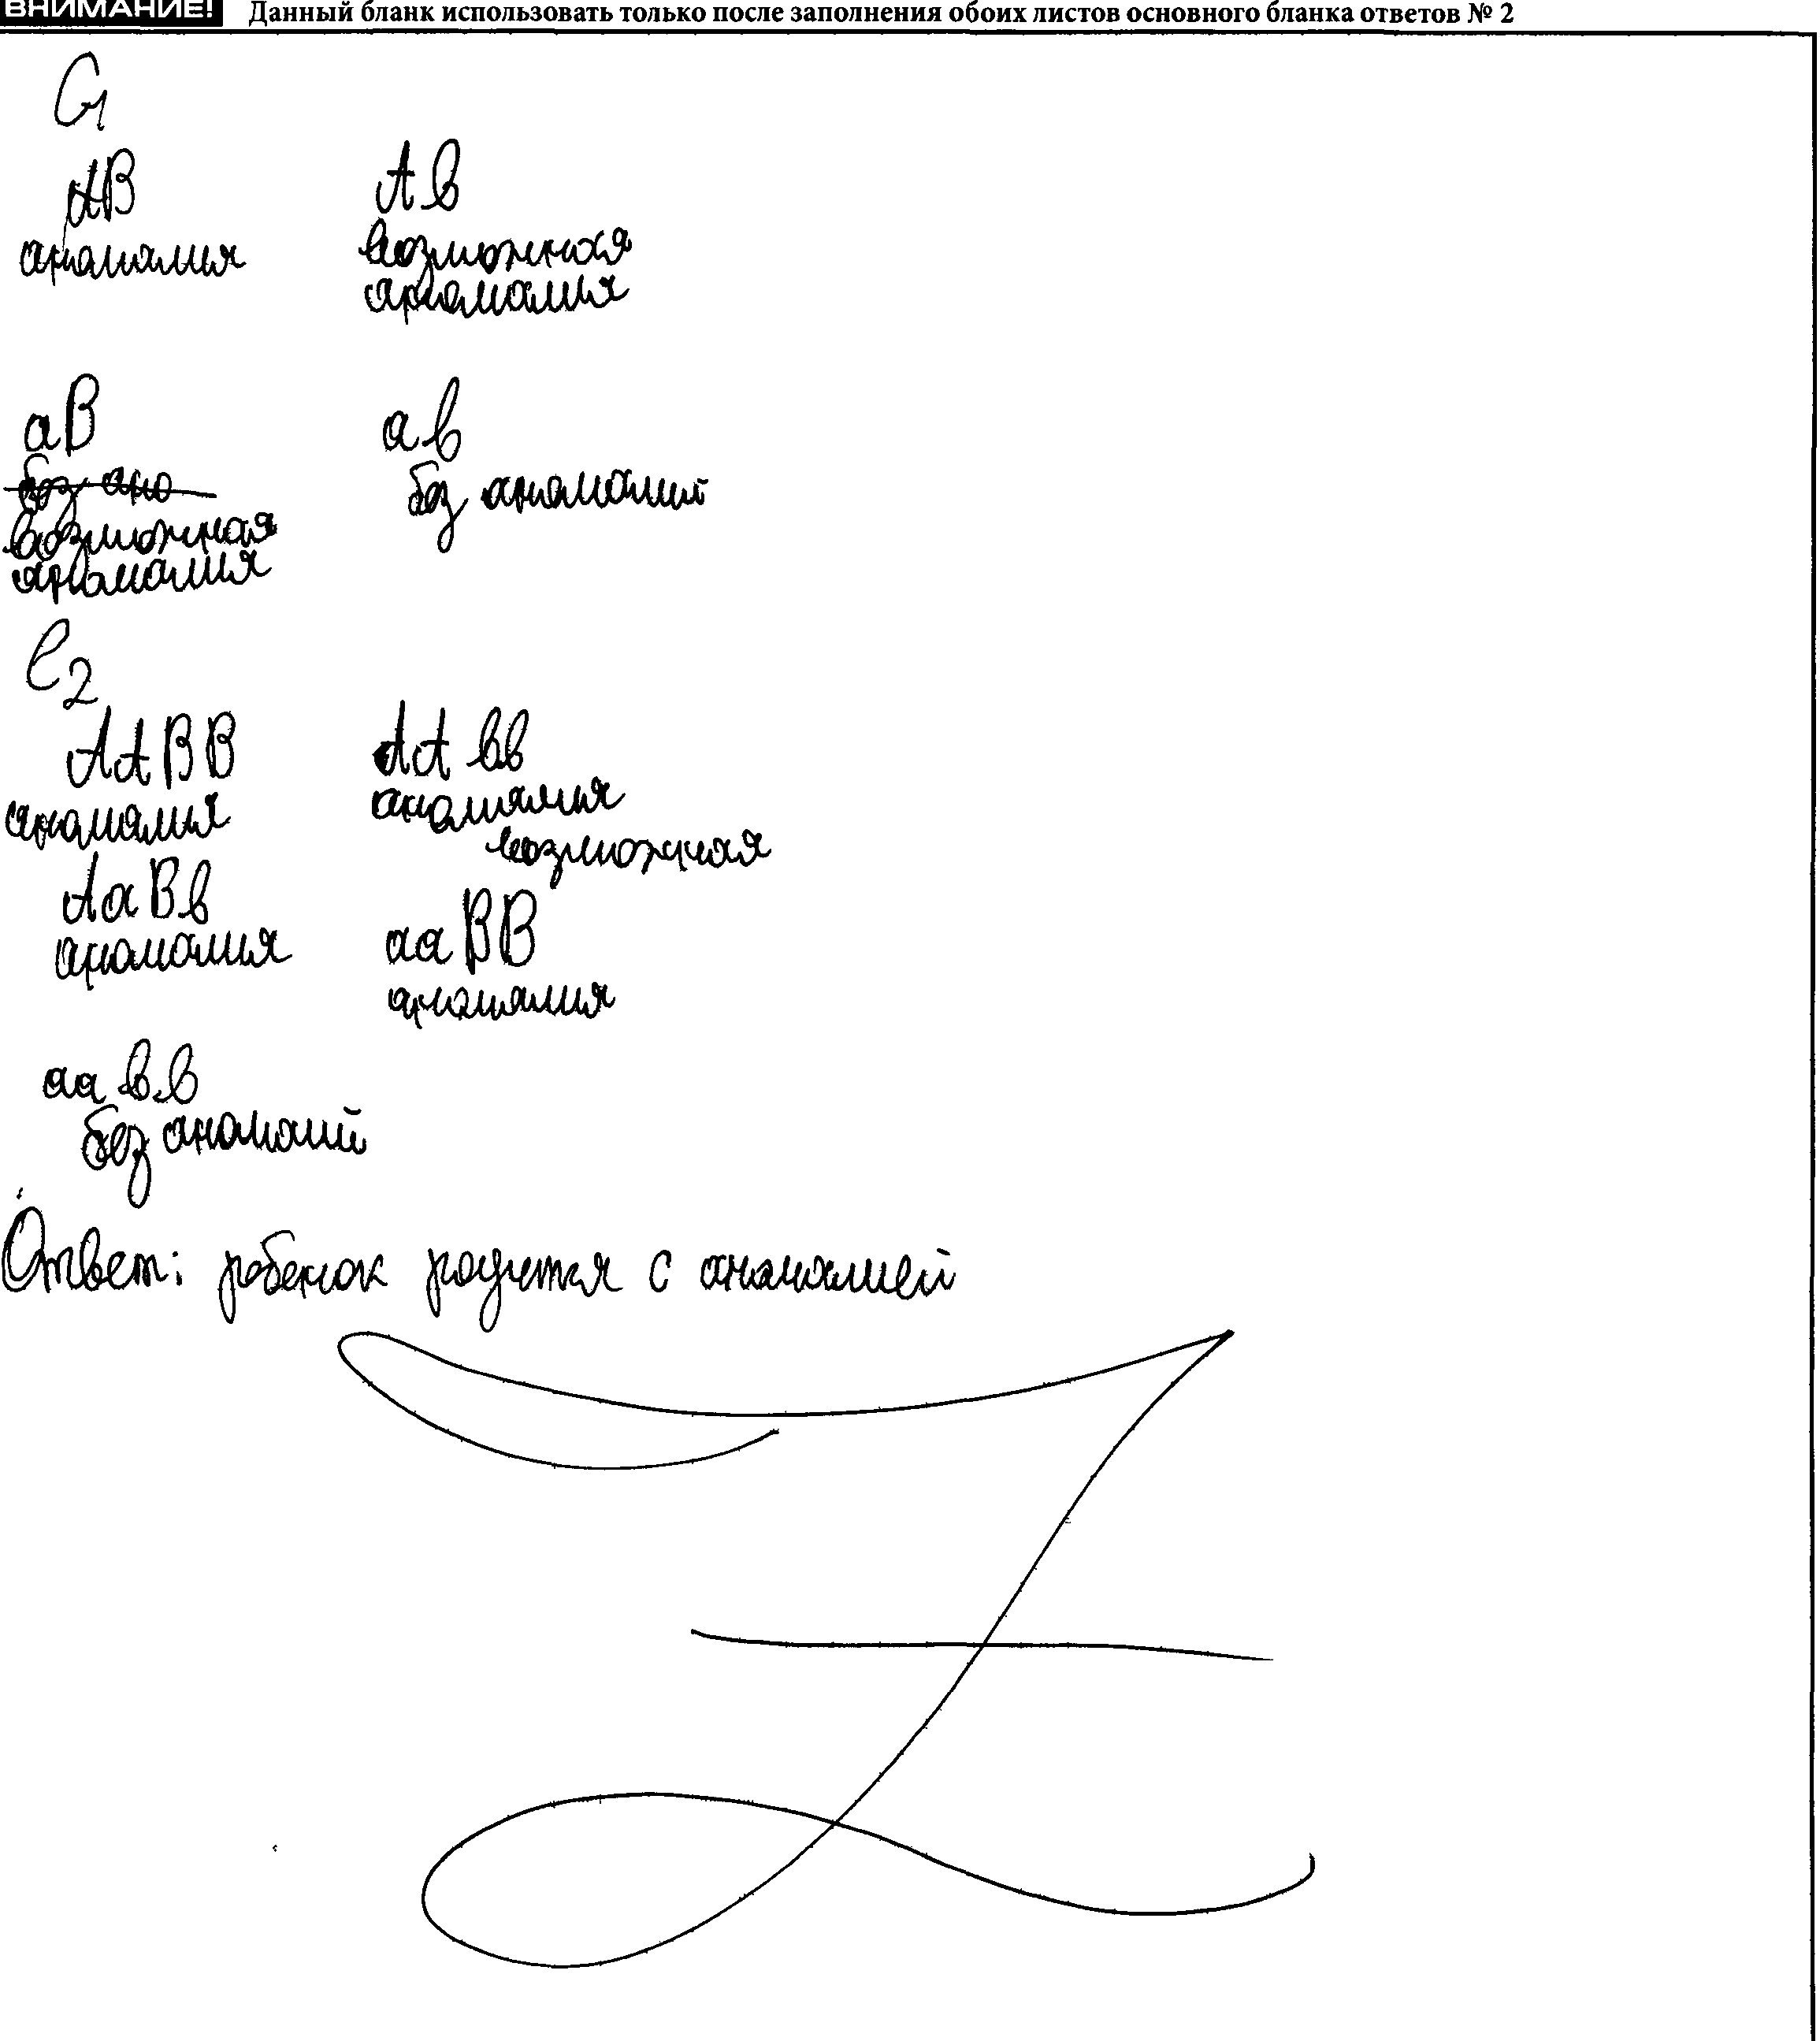 ВНИМАНИЕ! Данный бланк использовать только после заполнения обоих листов основного бланка ответов № 2
G1
AB Aв
аномалия возможная
аномалия
aB aв
без ано без аномалий
возможная
аномалия
C2
AABB AAвв
аномалия аномалия
возможная
AaBв aaBB
аномалия аномалия
aaвв
без аномалий
Ответ: ребенок родится с аномалией